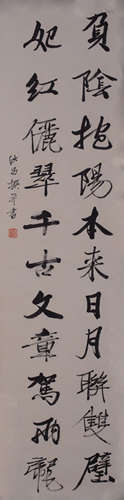 負陰抱陽本来日月聯雙璧
妃紅儷翠千古文章駕兩龍